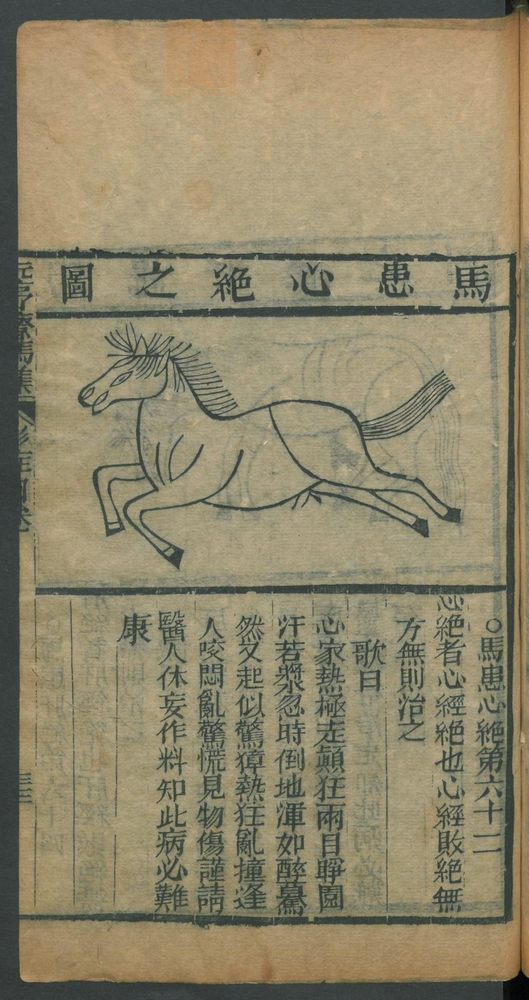 馬患心絶之圖
○馬患心絶第六十二
心絶者心經絶也心經敗絶無
方無則治之
歌曰
心家熱極走顛狂兩目睜圓
汗若漿忽時倒地渾如醉驀
然又起似驚獐熱狂亂撞逢
人咬悶亂驚慌見物傷謹請
醫人休妄作料知此病必難
康